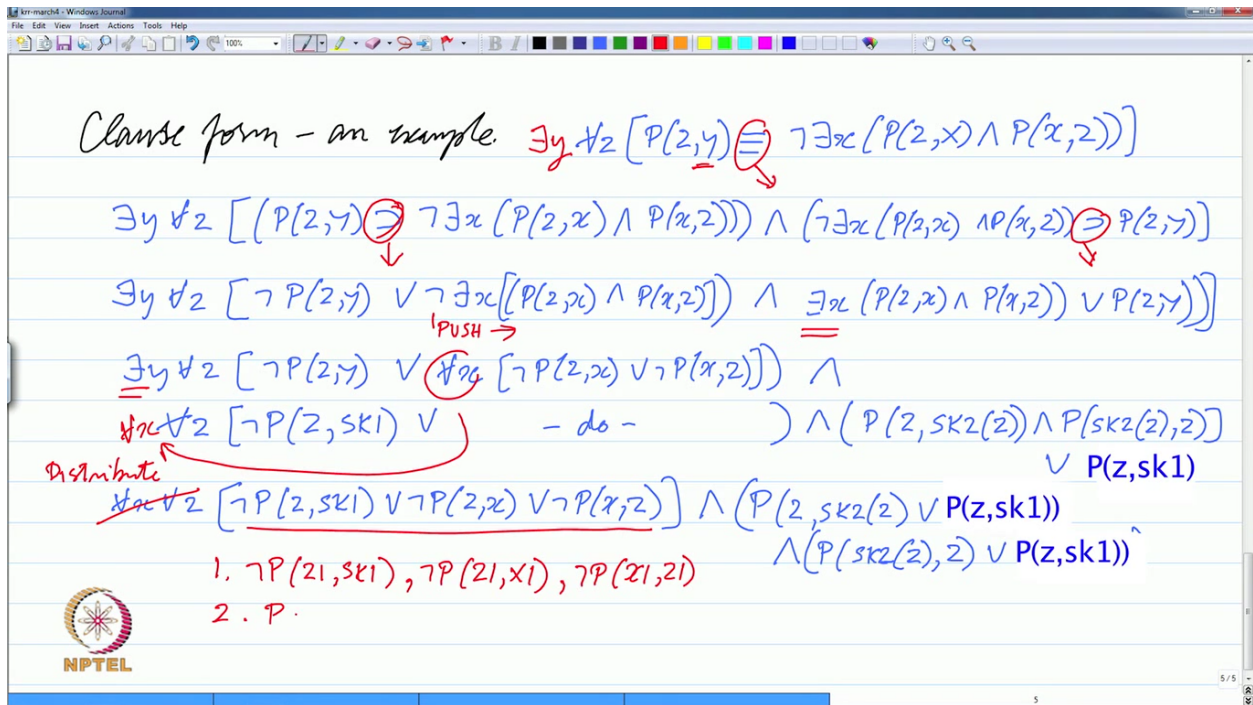 krr-march4 - Windows Journal
File Edit View Insert Actions Tools Help
100%
B I
Clause form – an example. ∃y ∀z [P(z,y) ≡ ¬∃x(P(z,x) ∧ P(x,z))]
∃y ∀z [(P(z,y) ⊃ ¬∃x(P(z,x) ∧ P(x,z))) ∧ (¬∃x(P(z,x) ∧P(x,z)) ⊃ P(z,y)]
∃y ∀z [¬P(z,y) ∨ ¬∃x[(P(z,x) ∧ P(x,z)]) ∧ ∃x (P(z,x) ∧ P(x,z)) ∨ P(z,y))]
PUSH →
∃y ∀z [¬P(z,y) ∨ ∀x [¬P(z,x) ∨ ¬P(x,z)]) ∧
∀x ∀z [¬P(z,sk1) ∨ – do – ) ∧ (P(z,sk2(z)) ∧ P(sk2(z),z)]
∨ P(z,sk1)
Distribute
∀x ∀z [¬P(z,sk1) ∨ ¬P(z,x) ∨ ¬P(x,z)] ∧ (P(z,sk2(z) ∨ P(z,sk1))
∧(P(sk2(z),z) ∨ P(z,sk1))
1. ¬P(z1,sk1), ¬P(z1,x1), ¬P(x1,z1)
2. P.
NPTEL
5/5
5